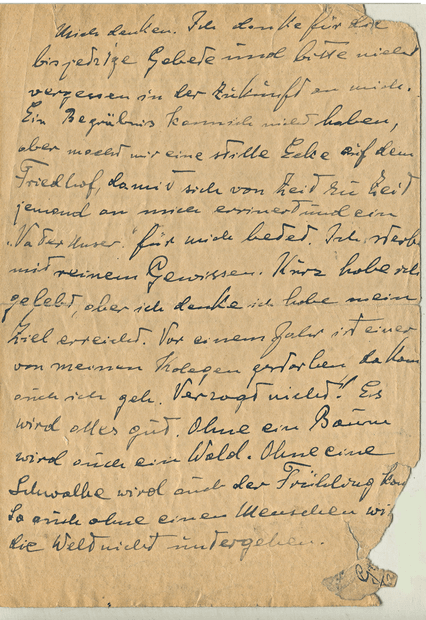 Mich denken. Ich denke für die
bisjedzige Gebete und bitte nicht
vergessen in der Zukunft an mich.
Ein Begräbnis kann ich nicht haben,
aber macht mir eine stille Ecke auf dem
Friedhof, damid sich von Zeid zu Zeid
jemend an mich errinert und ein
„Vater Unser" für mich bedet. Ich sterbe
mit reinem Gewissen. Kurz habe ich
gelebt, aber ich denke ich habe mein
Ziel erreicht. Vor einem Jahr ist einer
von meinen Kolegen gestorben da kann
auch ich geh. Verzagt nicht! Es
wird alles gut. Ohne ein Baum
wird auch ein Wald. Ohne eine
Schwalbe wird auch der Frühling
So auch ohne einen Menschen
die Welt nicht untergehen.